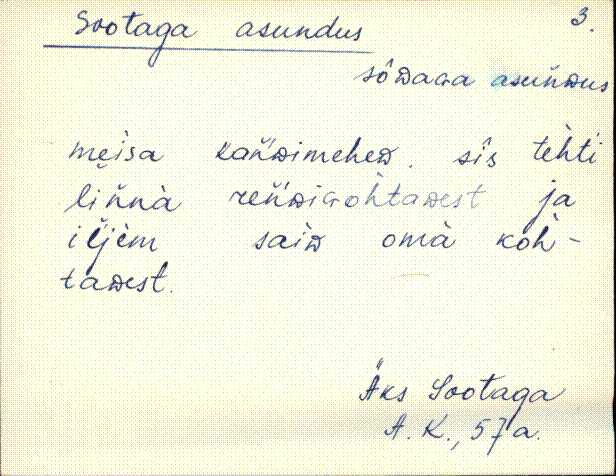 Sootaga asundus 3.
sȏᴅaɢa asuǹᴅus
mẹisa kaǹ̆ᴅimeheᴅ. sîs tèhti
liǹnà reǹ̆ᴅiɢòhtaᴅest ja
iĺjèm saiᴅ omà kòh-
taᴅest.
Äks Sootaga
A. K., 57 a.